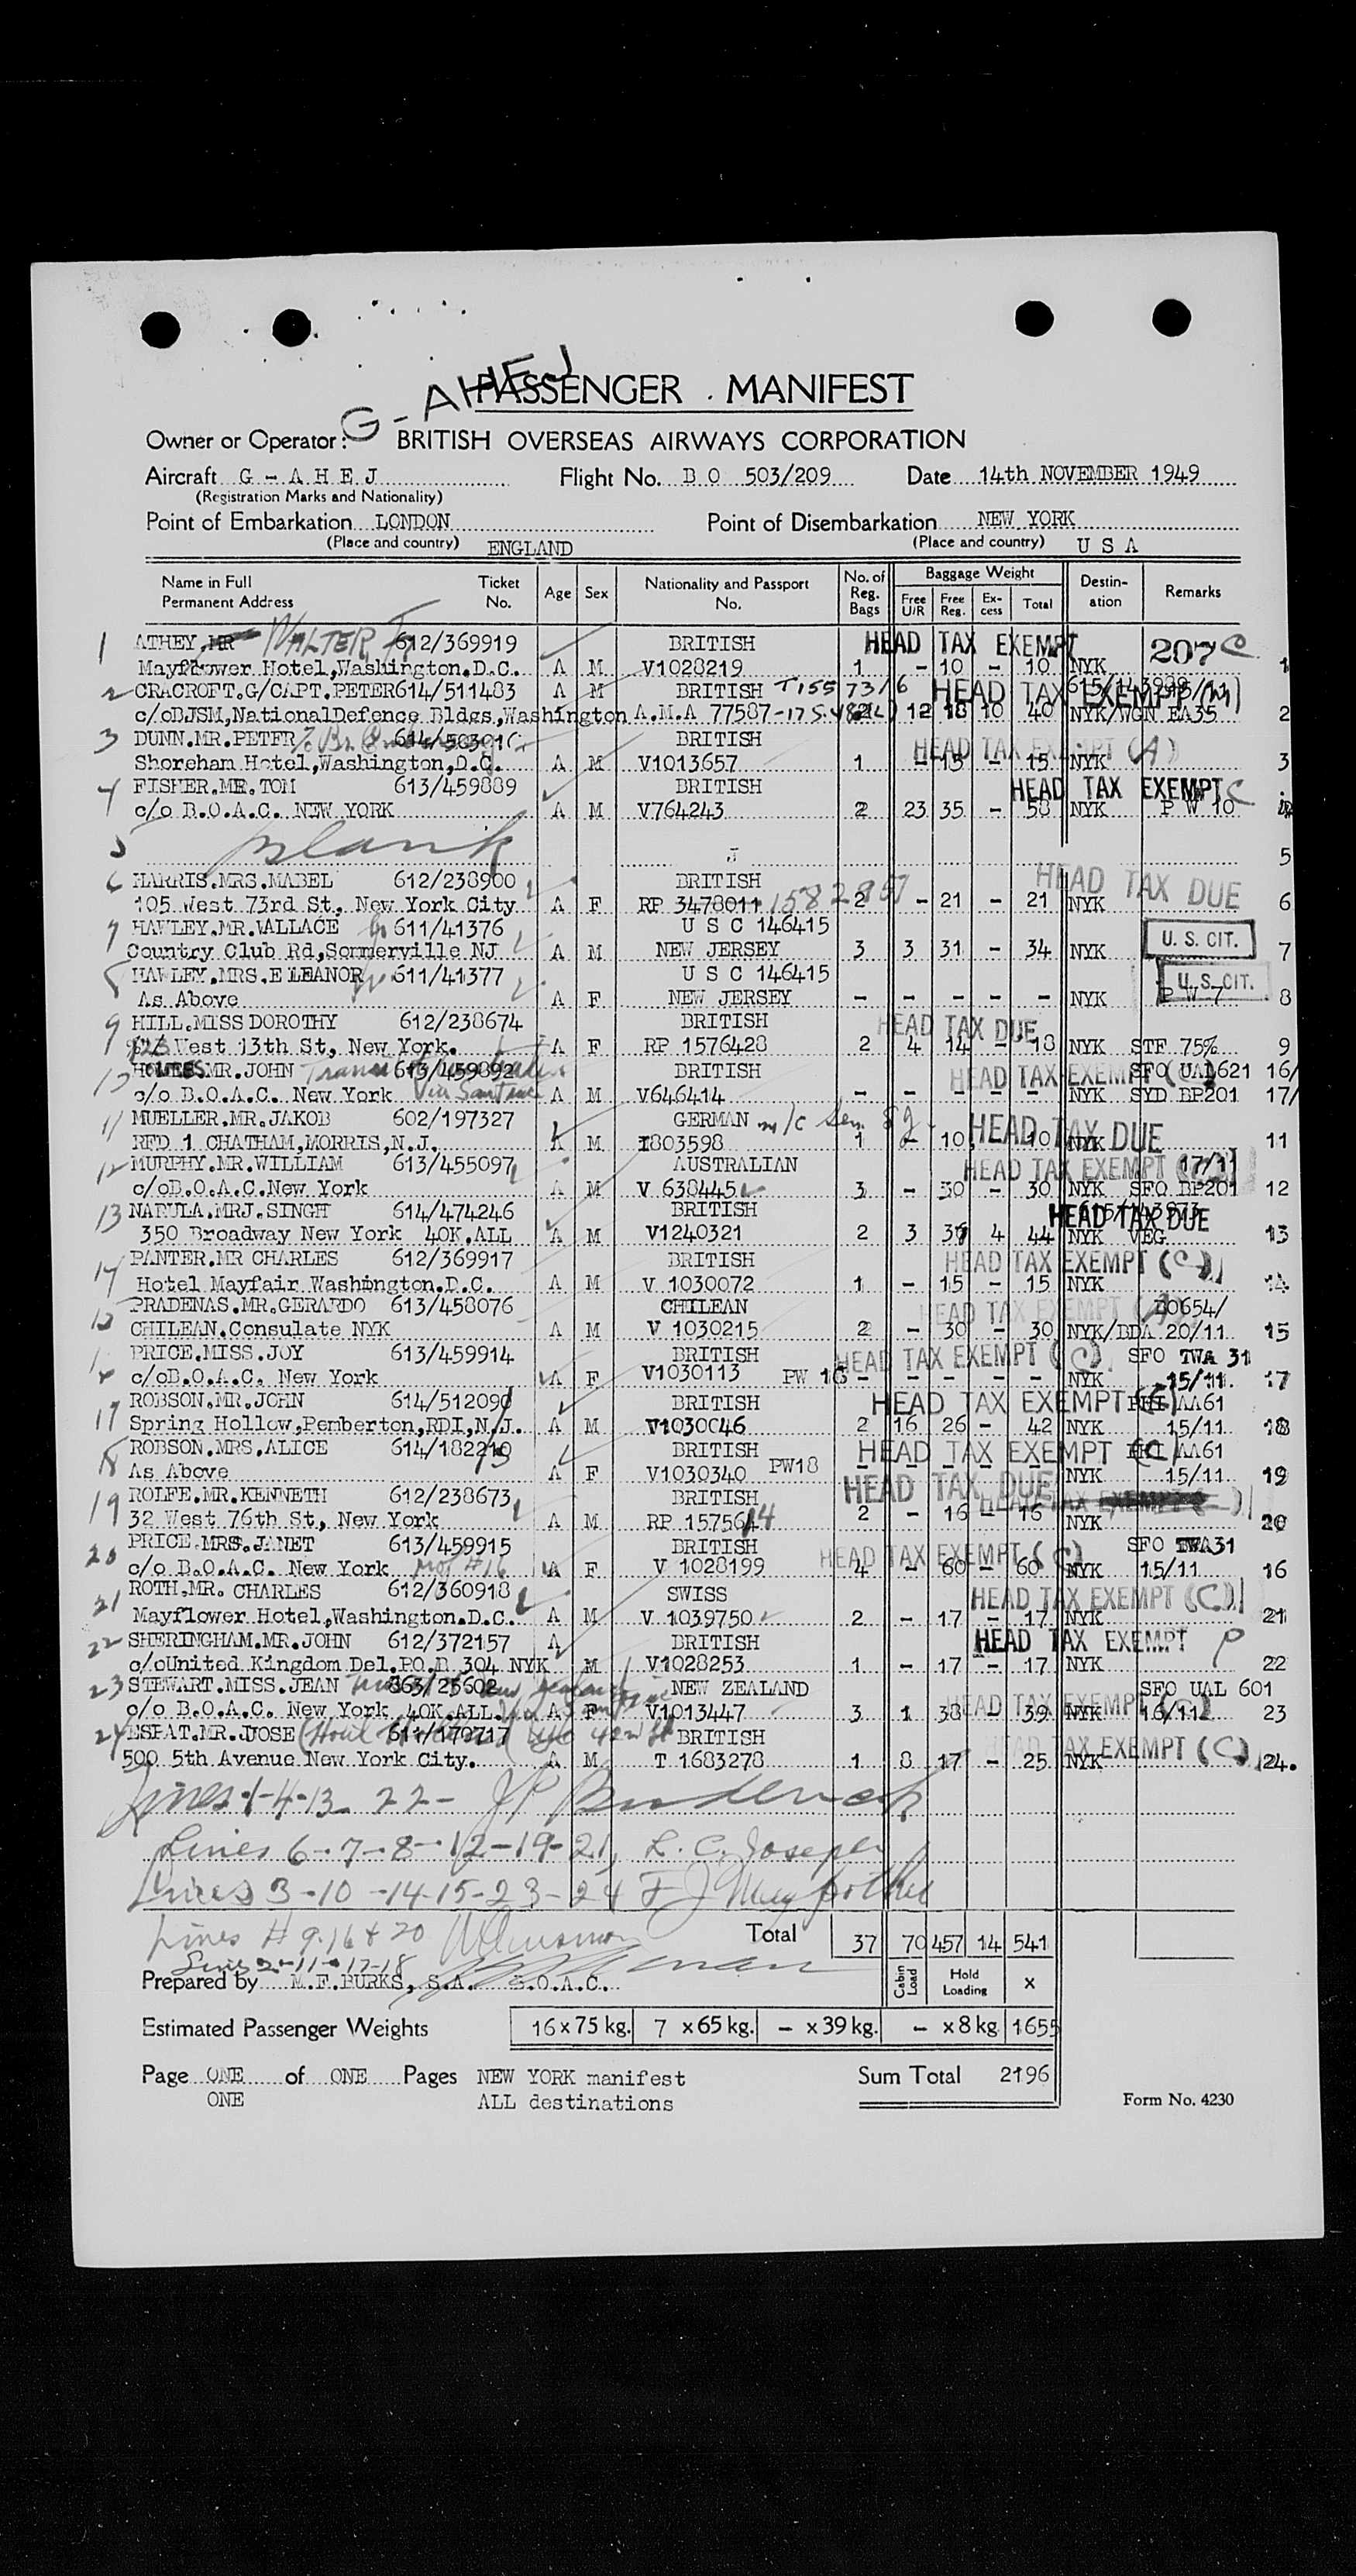 G-AHEJ
PASSENGER . MANIFEST
Owner or Operator: BRITISH OVERSEAS AIRWAYS CORPORATION
Aircraft G - A H E J Flight No. B O 503/209 Date 14th NOVEMBER 1949
(Registration Marks and Nationality)
Point of Embarkation LONDON Point of Disembarkation NEW YORK
(Place and country) ENGLAND (Place and country) U S A
Name in Full Permanent Address Ticket No. Age Sex Nationality and Passport No. No. of Reg. Bags Baggage Weight Free U/R Free Reg. Ex-cess Total Destin-ation Remarks
1 ATHEY.MR WALTER 612/369919 BRITISH HEAD TAX EXEMPT 207 C
Mayflower Hotel,Washington.D.C. A M V1028219 1 - 10 - 10 NYK 1
2 CRACROFT.G/CAPT.PETER 614/511483 A M BRITISH T155 73/6 HEAD TAX EXEMPT (M)
c/oBJSM,NationalDefence Bldgs,Washington A.M.A 77587 2 12 18 10 40 NYK/WGN EA35 2
3 DUNN.MR.PETER BRITISH HEAD TAX EXEMPT (A)
Shoreham Hotel,Washington,D.C. A M V1013657 1 - 15 - 15 NYK 3
4 FISHER.MR.TOM 613/459889 BRITISH HEAD TAX EXEMPT C
c/o B.O.A.C. NEW YORK A M V764243 2 23 35 - 58 NYK P W 10
5 blank 5
6 HARRIS.MRS.MABEL 612/238900 BRITISH HEAD TAX DUE
105 West 73rd St, New York City A F RP 3478011 2 - 21 - 21 NYK 6
7 HAWLEY.MR.WALLACE 611/41376 U S C 146415 U. S. CIT.
Country Club Rd,Sommerville NJ A M NEW JERSEY 3 3 31 - 34 NYK 7
8 HAWLEY.MRS.ELEANOR 611/41377 U S C 146415 U. S. CIT.
As Above A F NEW JERSEY - - - - - NYK P W 7 8
9 HILL.MISS DOROTHY 612/238674 BRITISH HEAD TAX DUE
West 13th St, New York. A F RP 1576428 2 4 14 - 18 NYK STF 75% 9
10 HOLMES.MR.JOHN 613/459892 BRITISH HEAD TAX EXEMPT SFO UAL621 16/
c/o B.O.A.C. New York A M V646414 - - - - - NYK SYD BP201 17/
11 MUELLER.MR.JAKOB 602/197327 GERMAN HEAD TAX DUE
RFD 1 CHATHAM,MORRIS,N.J. A M I803598 1 - 10 10 NYK 11
12 MURPHY.MR.WILLIAM 613/455097 AUSTRALIAN HEAD TAX EXEMPT 17/11
c/oB.O.A.C.New York A M V 638445 3 - 30 - 30 NYK SFO BP201 12
13 NARULA.MRJ.SINGH 614/474246 BRITISH HEAD TAX DUE
350 Broadway New York 40K.ALL A M V1240321 2 3 37 4 44 NYK VEG 13
14 PANTER.MR CHARLES 612/369917 BRITISH HEAD TAX EXEMPT (C)
Hotel Mayfair Washington.D.C. A M V 1030072 1 - 15 - 15 NYK 14
15 PRADENAS.MR.GERARDO 613/458076 CHILEAN HEAD TAX EXEMPT BO654/
CHILEAN.Consulate NYK A M V 1030215 2 - 30 - 30 NYK/BDA 20/11 15
16 PRICE.MISS.JOY 613/459914 BRITISH HEAD TAX EXEMPT (C) SFO TWA 31
c/oB.O.A.C. New York A F V1030113 PW 16 - - - - - NYK 15/11. 17
17 ROBSON.MR.JOHN 614/512090 BRITISH HEAD TAX EXEMPT (C) AA61
Spring Hollow,Pemberton,RDI,N.J. A M V1030046 2 16 26 - 42 NYK 15/11 18
18 ROBSON.MRS.ALICE BRITISH HEAD TAX EXEMPT (C) AA61
As Above A F V1030340 PW18 - - - - - NYK 15/11 19
19 ROLFE.MR.KENNETH 612/238673 BRITISH HEAD TAX DUE
32 West 76th St, New York A M RP 157564 2 - 16 - 16 NYK 20
20 PRICE.MRS.JANET 613/459915 BRITISH HEAD TAX EXEMPT (C) SFO TWA31
c/o B.O.A.C. New York A F V 1028199 4 - 60 - 60 NYK 15/11 16
21 ROTH.MR. CHARLES 612/360918 SWISS HEAD TAX EXEMPT (C)
Mayflower Hotel,Washington.D.C. A M V 1039750 2 - 17 - 17 NYK 21
22 SHERINGHAM.MR.JOHN 612/372157 A BRITISH HEAD TAX EXEMPT P
c/oUnited Kingdom Del.PO.B 304 NYK M V1028253 1 - 17 - 17 NYK 22
23 STEWART.MISS.JEAN 863/25602 NEW ZEALAND SFO UAL 601
c/o B.O.A.C. New York 40K.ALL. A F V1013447 3 1 38 - 39 NYK 16/11 HEAD TAX EXEMPT 23
24 ESPAT.MR.JOSE 611/170717 BRITISH
500 5th Avenue New York City. A M T 1683278 1 8 17 - 25 NYK TAX EXEMPT (C) 24.
Lines 1-4-13 22-
Lines 6-7-8-12-19-21, L. C. Joseph
Lines 3-10-14-15-23-24
Lines # 9.16 + 20 Total 37 70 457 14 541
Lines 2-11-17-18
Prepared by M.F.BURKS, S.A. B.O.A.C. Cabin Load Hold Loading x
Estimated Passenger Weights 16 x 75 kg. 7 x 65 kg. - x 39 kg. - x 8 kg 1655
Page ONE of ONE Pages NEW YORK manifest Sum Total 2196
ONE ALL destinations Form No. 4230